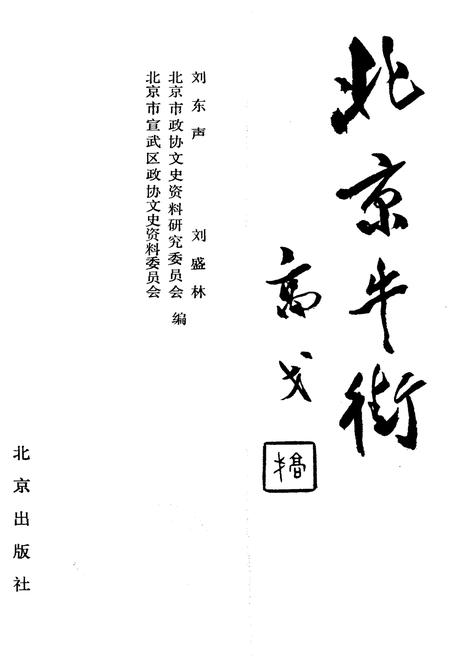 北京牛街
高戈
刘东声 刘盛林
北京市政协文史资料研究委员会
北京市宣武区政协文史资料委员会
编
北京出版社